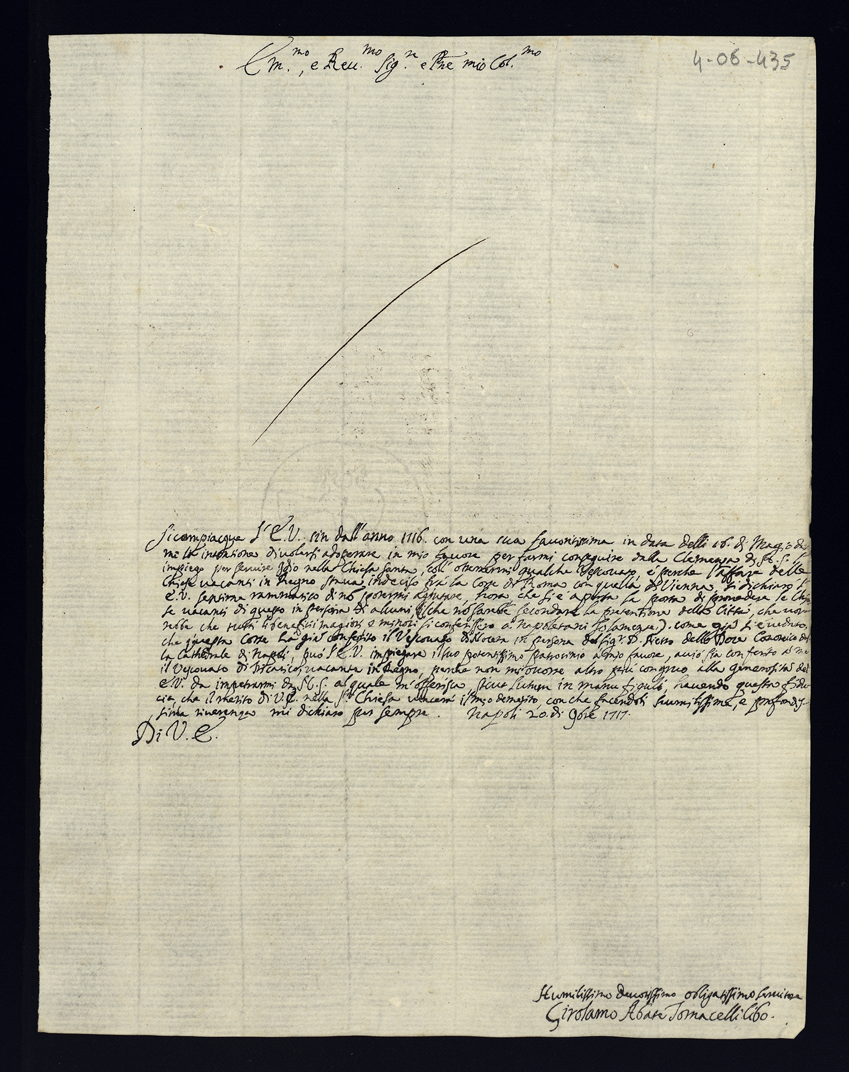 Em.mo, e Reu.mo Sig.re e Pñe mio Col.mo
4-06-435
Si compiacque l'E.V. sin dall'anno 1716. con una sua fauoritissima in data delli 16. di Maggio
me la intenzione di uolersi adoperare in mio fauore per farmi conseguire dalla Clemenza di
impiego per seruire Iddio nella Chiesa Santa, coll' ottenermi qualche Vescouato, e perche l'affare delle
Chiese uacanti in Regno staua indeciso fra la Corte di Roma con quella di Vienna, si dichiarò l'
E.V. sentirne rammarico di nõ potermi aiutare, hora che si è aperta la porta di prouedere le Chie
se uacanti di questo in persona di alcuni (che nõ sarebbe secondare la pretentione della Città, che uor
rebbe che tutti i beneficij maggiori e minori si conferissero a Napoletani solamente) come già si è ueduto,
che questa Corte ha già conferito il Vescouato di in persona del Sig.r D. della Canonico del
la Catthedrale di Napoli, può l'E.V. impiegare il suo potentissimo patrocinio a mio fauore,
il Vescouato di uacante in Regno, perche non mi occorre altro più congruo alla generosità dell'
E.V. da impetrarmi da S.S. al quale m'offerisco sicut lutum in manu figuli, hauendo questa fidu
cia, che il merito di V.E. nella S.ta Chiesa uincerà il mio demerito, con che facendoli humilissima, e profondis
sima riuerenza mi dichiaro per sempre. Napoli 20. di 9bre 1717.
Di V. E.
Humilissimo deuotissimo obligatissimo seruitore
Girolamo Abate Tomacelli Cibo.